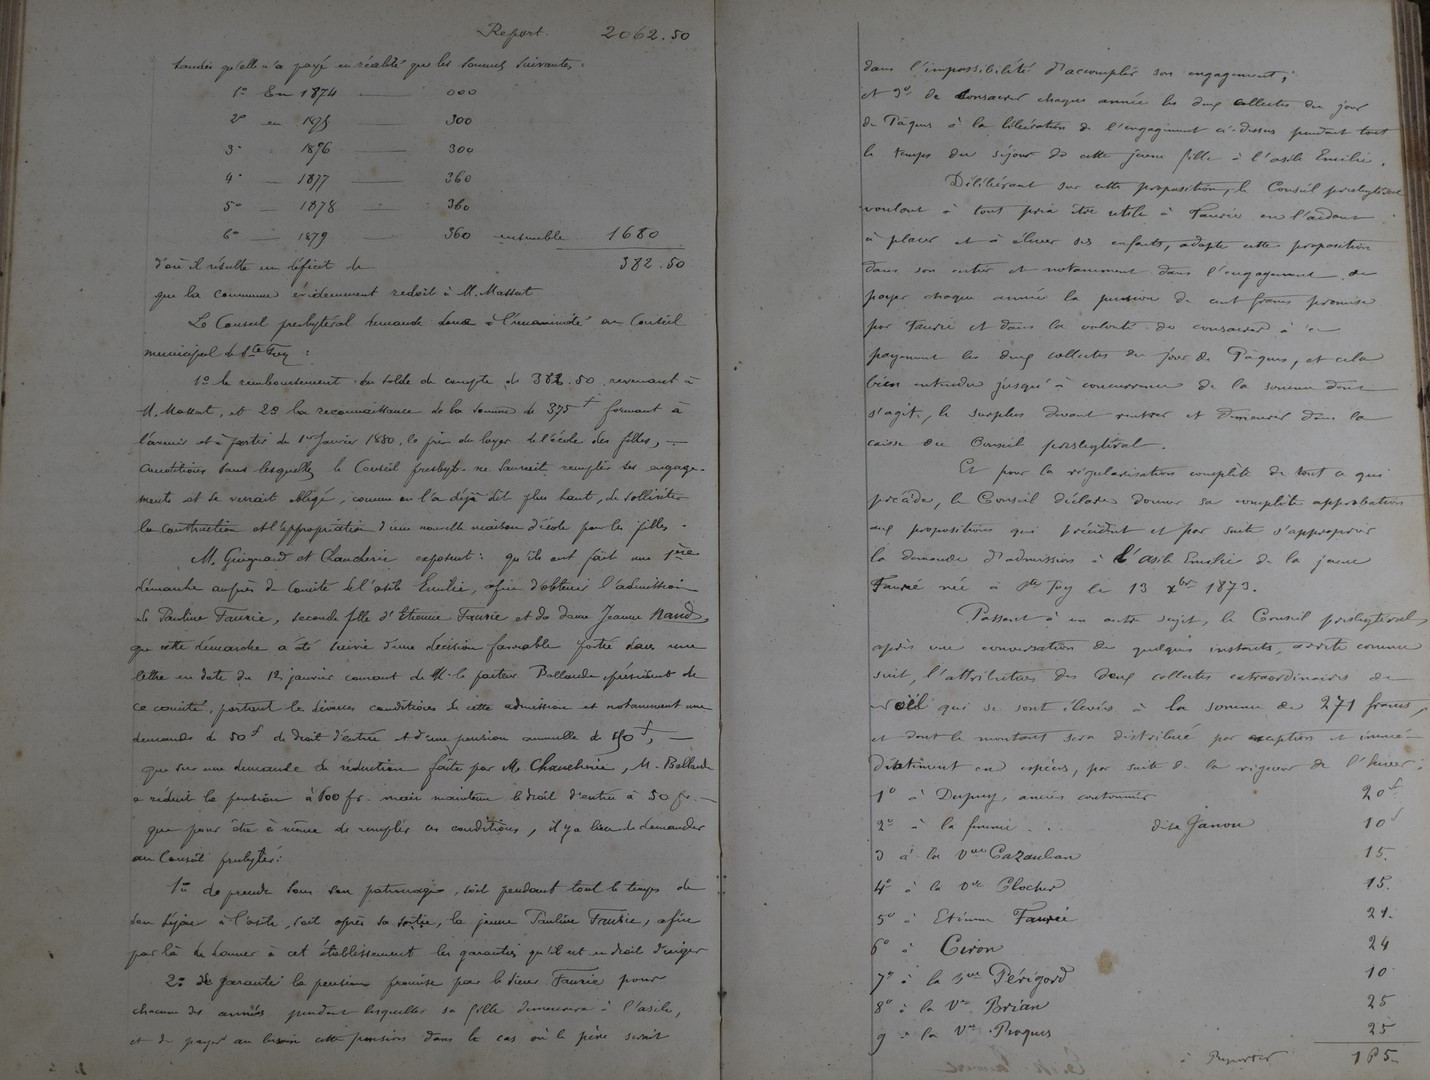 Report. 2062.50
tandis qu'elle n'a payé en réalité que les sommes suivantes.
1º En 1874 — 000
2º en 1875 — 300
3º 1876 — 300
4º — 1877 — 360
5º — 1878 — 360
6º — 1879 — 360 ensemble 1680
d'où il résulte un déficit de 382.50
que la commune évidemment redoit à M. Massat
Le Conseil presbytéral demande donc à l'unanimité au Conseil
municipal de Ste Foy :
1º le remboursement du solde de compte de 382.50 revenant à
M. Massat, et 2º la reconnaissance de la somme de 375 f formant à
l'avenir et à partir du 1er Janvier 1880, le prix du loyer de l'école des filles, —
conditions sans lesquelles le Conseil presbyt. ne saurait remplir ses engage-
ments et se verrait obligé, comme on l'a déjà dit plus haut, de solliciter
la construction et l'appropriation d'une nouvelle maison d'école pour les filles.
M. Guignard et Chaucherie exposent : qu'ils ont fait une 1ère
démarche auprès du Comité de l'asile Emilie, afin d'obtenir l'admission
de Pauline Faurie, seconde fille d'Etienne Faurie et de dame Jeanne Naud,
que cette démarche a été suivie d'une décision favorable portée dans une
lettre en date du 12 janvier courant de M. le pasteur président de
ce comité, portant les diverses conditions de cette admission et notamment une
demande de 50 f de droit d'entrée et d'une pension annuelle de 150 f, —
que sur une demande de réduction faite par M. Chaucherie, M.
a réduit la pension à 100 fr. mais maintenu le droit d'entrée à 50 fr. —
que pour être à même de remplir ces conditions, il y a lieu de demander
au Conseil presbytér:
1º de prendre sous son patronage, soit pendant tout le temps de
son séjour à l'asile, soit après sa sortie, la jeune Pauline Faurie, afin
par là de donner à cet établissement les garanties qu'il est en droit d'exiger
2º de garantir la pension promise par le sieur Faurie pour
chacune des années pendant lesquelles sa fille demeurera à l'asile,
et de payer au besoin cette pension dans le cas où le père serait
dans l'impossibilité d'accomplir son engagement;
et 3º de consacrer chaque année les deux collectes du jour
de Pâques à la libération de l'engagement ci-dessus pendant tout
le temps du séjour de cette jeune fille à l'asile Emilie.
Délibérant sur cette proposition, le Conseil presbytéral
voulant à tout prix être utile à Faurie en l'aidant
à placer et à élever ses enfants, adopte cette proposition
dans son entier et notamment dans l'engagement de
payer chaque année la pension de cent francs promise
par Faurie et dans la volonté de consacrer à ce
payement les deux collectes du jour de Pâques, et cela
bien entendu jusqu'à concurrence de la somme dont
s'agit, le surplus devant rentrer et demeurer dans la
caisse du Conseil presbytéral.
Et pour la régularisation complète de tout ce qui
précède, le Conseil déclare donner sa complète approbation
aux propositions qui précèdent et par suite s'approprier
la demande d'admission à l'asile Emilie de la jeune
Faurie née à Ste Foy le 13 xbre 1873.
Passant à un autre sujet, le Conseil presbytéral,
après une conversation de quelques instants, arrête comme
suit, l'attribution des deux collectes extraordinaires de
Noël qui se sont élevées à la somme de 271 francs,
et dont le montant sera distribué par exception et immé-
diatement en espèces, par suite de la rigueur de l'hiver:
1º à Dupuy, ancien cantonnier 20 f
2º à la femme . . dite Janou 10 f
3 à la Vve Cazauban 15.
4º à la Vve Clocher 15.
5º à Etienne Faurie 21.
6º à Ciron 24
7º à la Vve Périgord 10
8º à la Vve Brian 25
9 à la Vve Proques 25
à Reporter 165